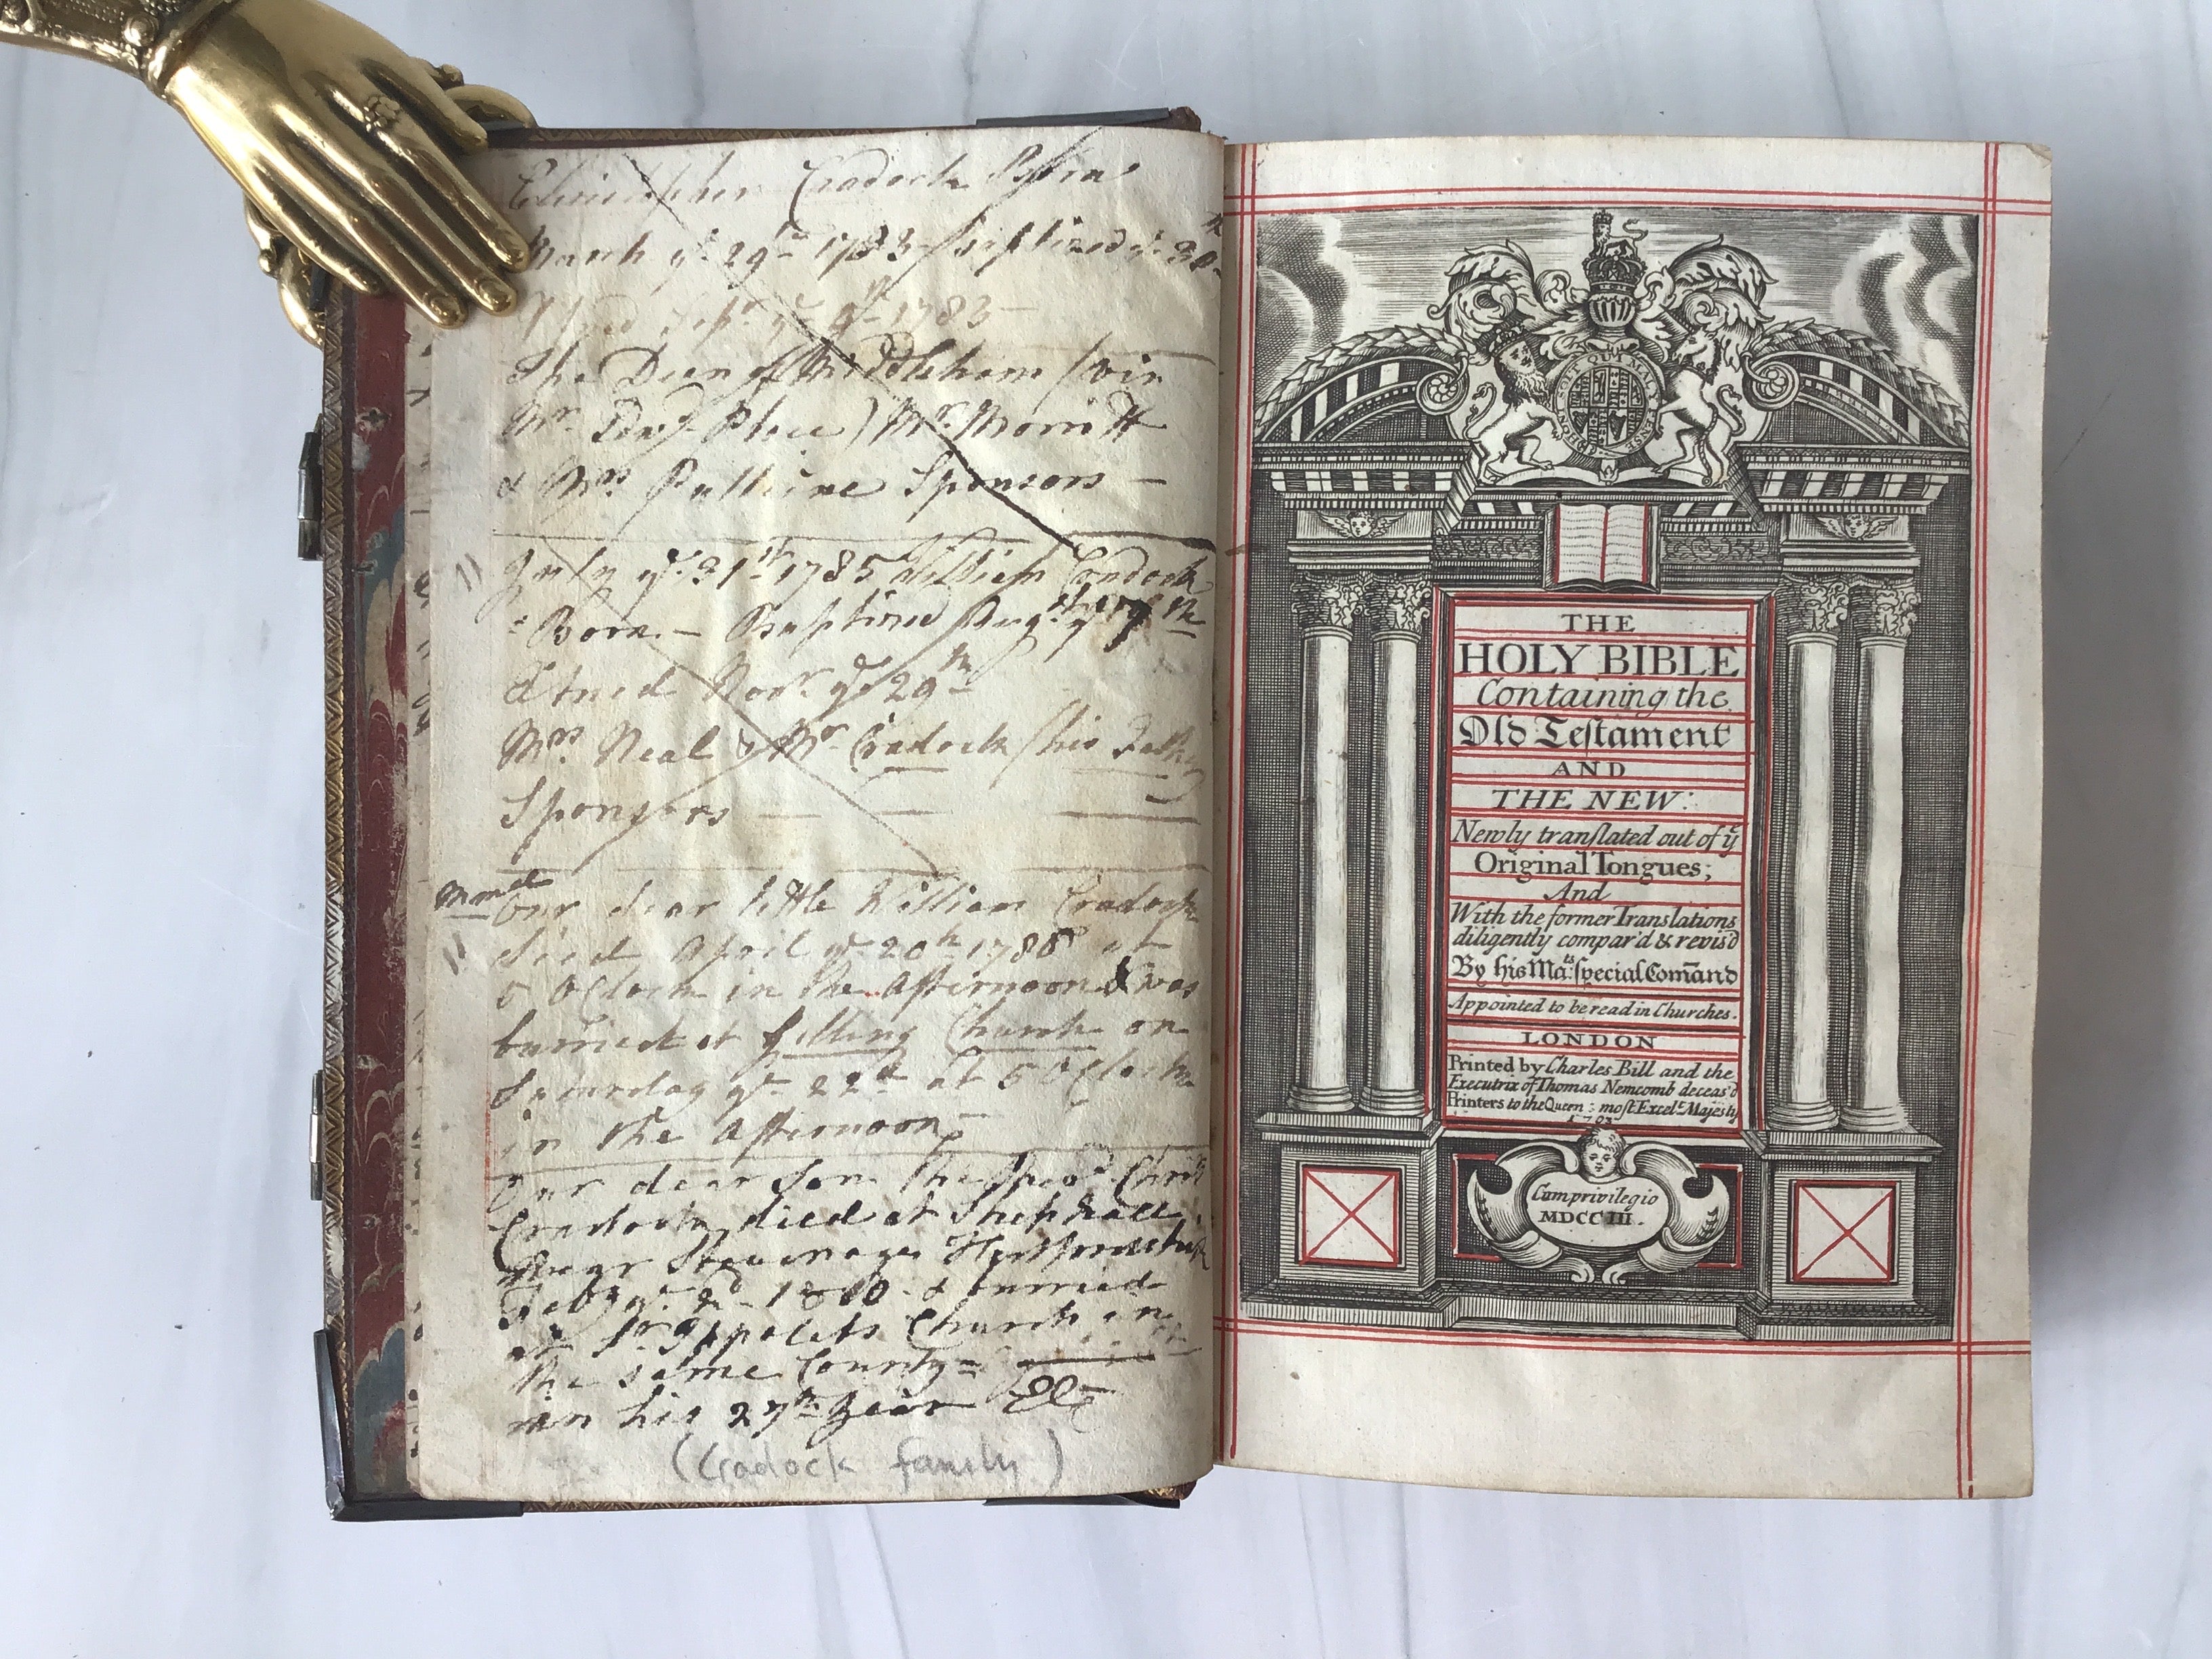 Christopher Cradock Born
March ye. 29th 1783 baptized ye. 30th
Sepr. ye 4th 1783 —
The Dean of Middleham (viz
Mr. Edwd. Place) Mr. Morritt
& Mrs. Pulleine Sponsors —
July ye. 31st 1785 William Cradock
Born — Baptized Augst ye
Novr. ye 29th
Mrs. Neal & Mr. Cradock (his Father
Sponsors —
Our dear little William Cradock
died April ye 20th 1786 at
5 OClock in the Afternoon & was
burried at Gilling Church on
Saturday ye 22d at 5 OClock
in the Afternoon —
Our dear Son the Revd. Christ
Cradock, died at Shephall
Near Stevenage Hertfordshire
Feby ye. 2d - 1810 - & burried
at St. Ippolets Church in
the same County =
in his 27th Year
(Cradock family)
HONI SOIT QUI MAL Y PENSE
THE
HOLY BIBLE
Containing the
Old Testament
AND
THE NEW:
Newly translated out of ye
Original Tongues;
And
With the former Translations
diligently compar'd & revis'd
By his Ma:ts special Comand
Appointed to be read in Churches.
LONDON
Printed by Charles Bill and the
Executrix of Thomas Newcomb deceas'd
Printers to the Queen's most Excelt. Majesty
1703
Cum privilegio
MDCCIII.